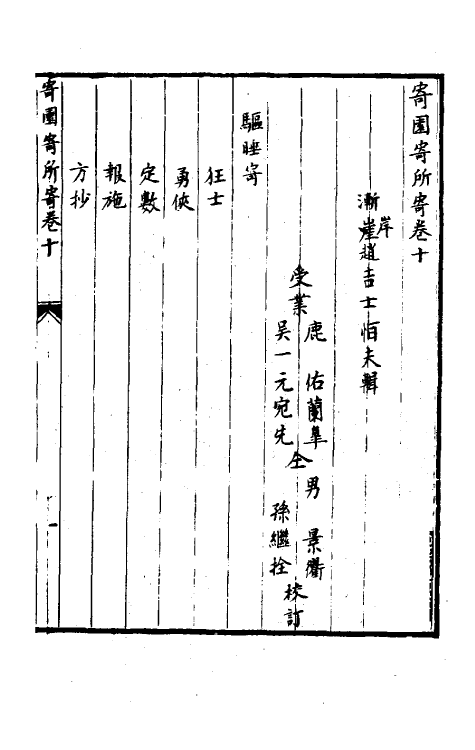 寄園寄所寄卷十
漸岸崖趙吉士恒夫輯
受業
鹿佑蘭皐
吳一元宛先
仝
男景衢
孫繼拴
校訂
驅睡寄
狂士
勇俠
定數
報施
方抄
寄園寄所寄卷十
一